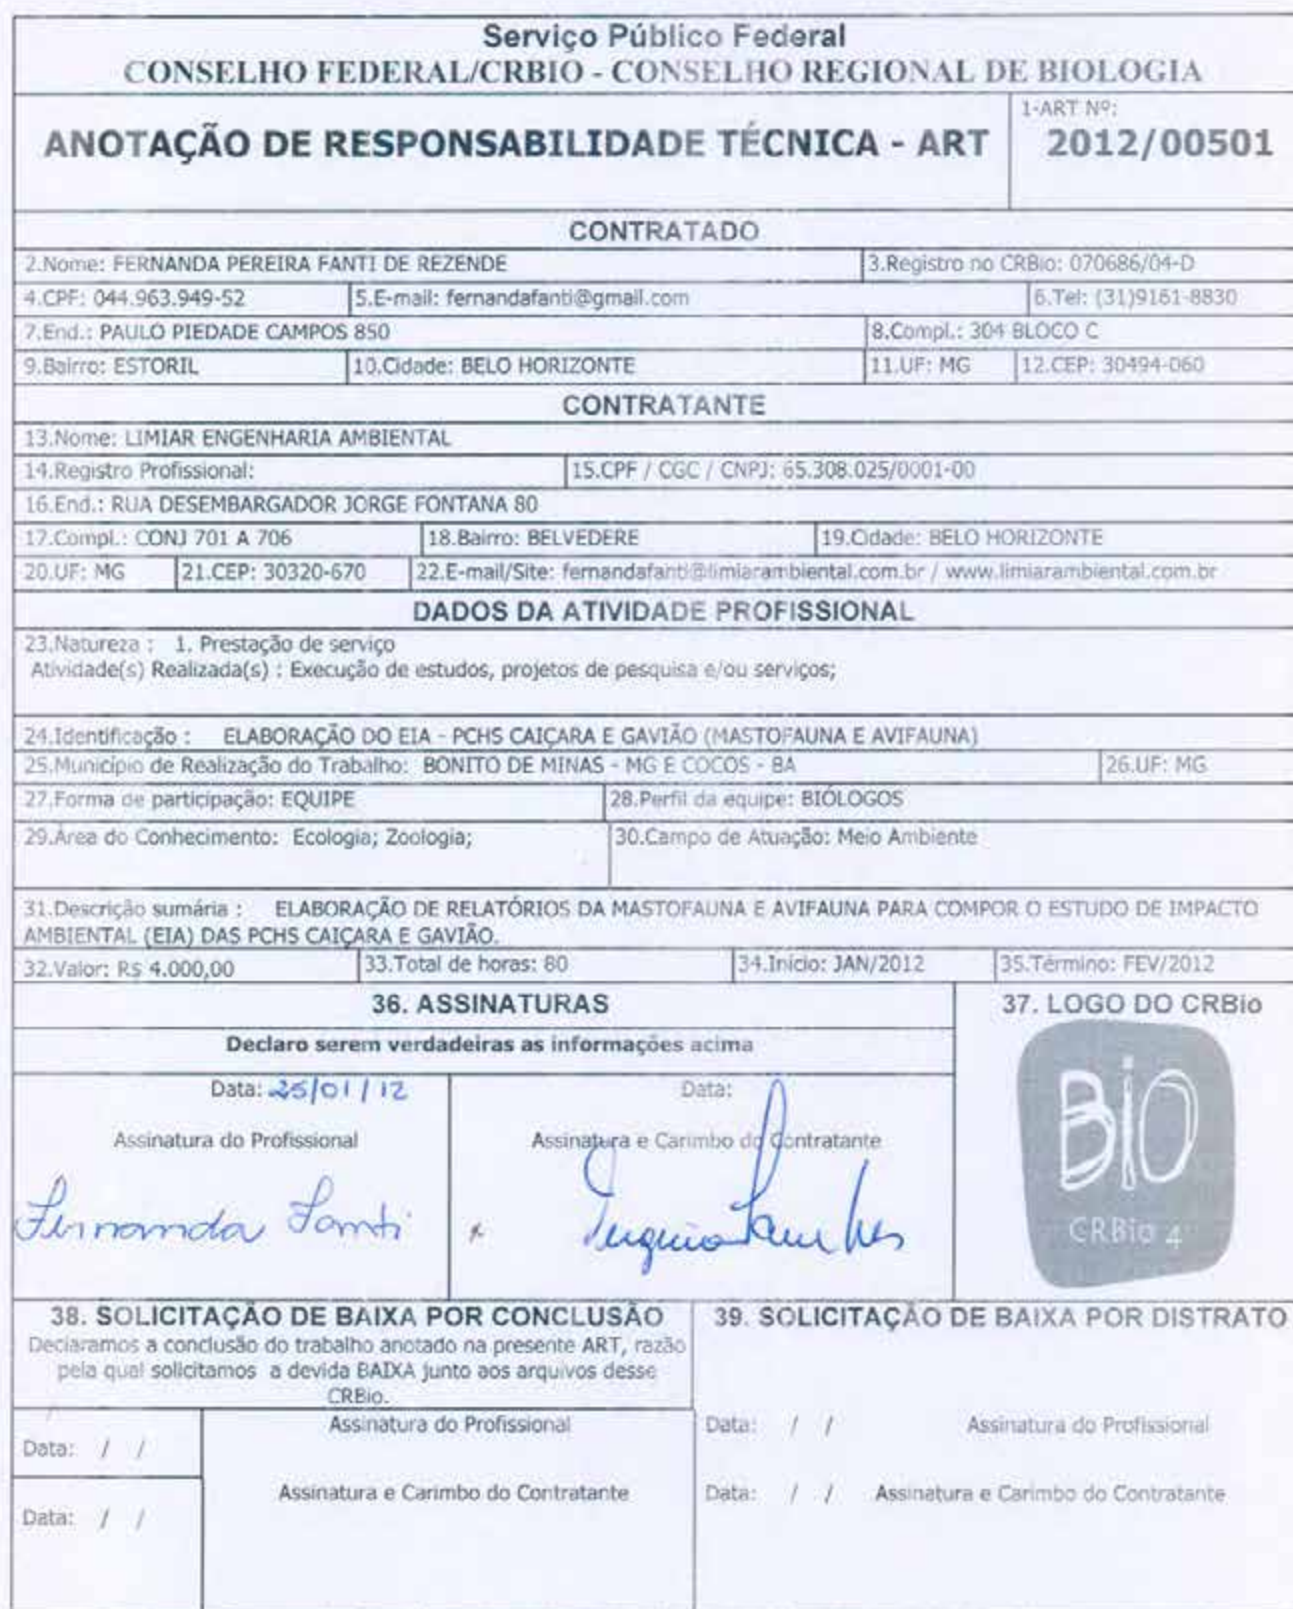 Serviço Público Federal
CONSELHO FEDERAL/CRBIO - CONSELHO REGIONAL DE BIOLOGIA
ANOTAÇÃO DE RESPONSABILIDADE TÉCNICA - ART
1-ART Nº:
2012/00501
CONTRATADO
2.Nome: FERNANDA PEREIRA FANTI DE REZENDE 3.Registro no CRBio: 070686/04-D
4.CPF: 044.963.949-52 5.E-mail: fernandafanti@gmail.com 6.Tel: (31)9161-8830
7.End.: PAULO PIEDADE CAMPOS 850 8.Compl.: 304 BLOCO C
9.Bairro: ESTORIL 10.Cidade: BELO HORIZONTE 11.UF: MG 12.CEP: 30494-060
CONTRATANTE
13.Nome: LIMIAR ENGENHARIA AMBIENTAL
14.Registro Profissional: 15.CPF / CGC / CNPJ: 65.308.025/0001-00
16.End.: RUA DESEMBARGADOR JORGE FONTANA 80
17.Compl.: CONJ 701 A 706 18.Bairro: BELVEDERE 19.Cidade: BELO HORIZONTE
20.UF: MG 21.CEP: 30320-670 22.E-mail/Site: fernandafanti@limiarambiental.com.br / www.limiarambiental.com.br
DADOS DA ATIVIDADE PROFISSIONAL
23.Natureza : 1. Prestação de serviço
Atividade(s) Realizada(s) : Execução de estudos, projetos de pesquisa e/ou serviços;
24.Identificação : ELABORAÇÃO DO EIA - PCHS CAIÇARA E GAVIÃO (MASTOFAUNA E AVIFAUNA)
25.Município de Realização do Trabalho: BONITO DE MINAS - MG E COCOS - BA 26.UF: MG
27.Forma de participação: EQUIPE 28.Perfil da equipe: BIÓLOGOS
29.Área do Conhecimento: Ecologia; Zoologia; 30.Campo de Atuação: Meio Ambiente
31.Descrição sumária : ELABORAÇÃO DE RELATÓRIOS DA MASTOFAUNA E AVIFAUNA PARA COMPOR O ESTUDO DE IMPACTO
AMBIENTAL (EIA) DAS PCHS CAIÇARA E GAVIÃO.
32.Valor: R$ 4.000,00 33.Total de horas: 80 34.Início: JAN/2012 35.Término: FEV/2012
36. ASSINATURAS
37. LOGO DO CRBio
Declaro serem verdadeiras as informações acima
Data: 25/01/12 Data:
Assinatura do Profissional Assinatura e Carimbo do Contratante
Fernanda Fanti
BiO
CRBio 4
38. SOLICITAÇÃO DE BAIXA POR CONCLUSÃO
Declaramos a conclusão do trabalho anotado na presente ART, razão
pela qual solicitamos a devida BAIXA junto aos arquivos desse
CRBio.
39. SOLICITAÇÃO DE BAIXA POR DISTRATO
Data: / / Assinatura do Profissional
Data: / / Assinatura e Carimbo do Contratante
Data: / / Assinatura do Profissional
Data: / / Assinatura e Carimbo do Contratante